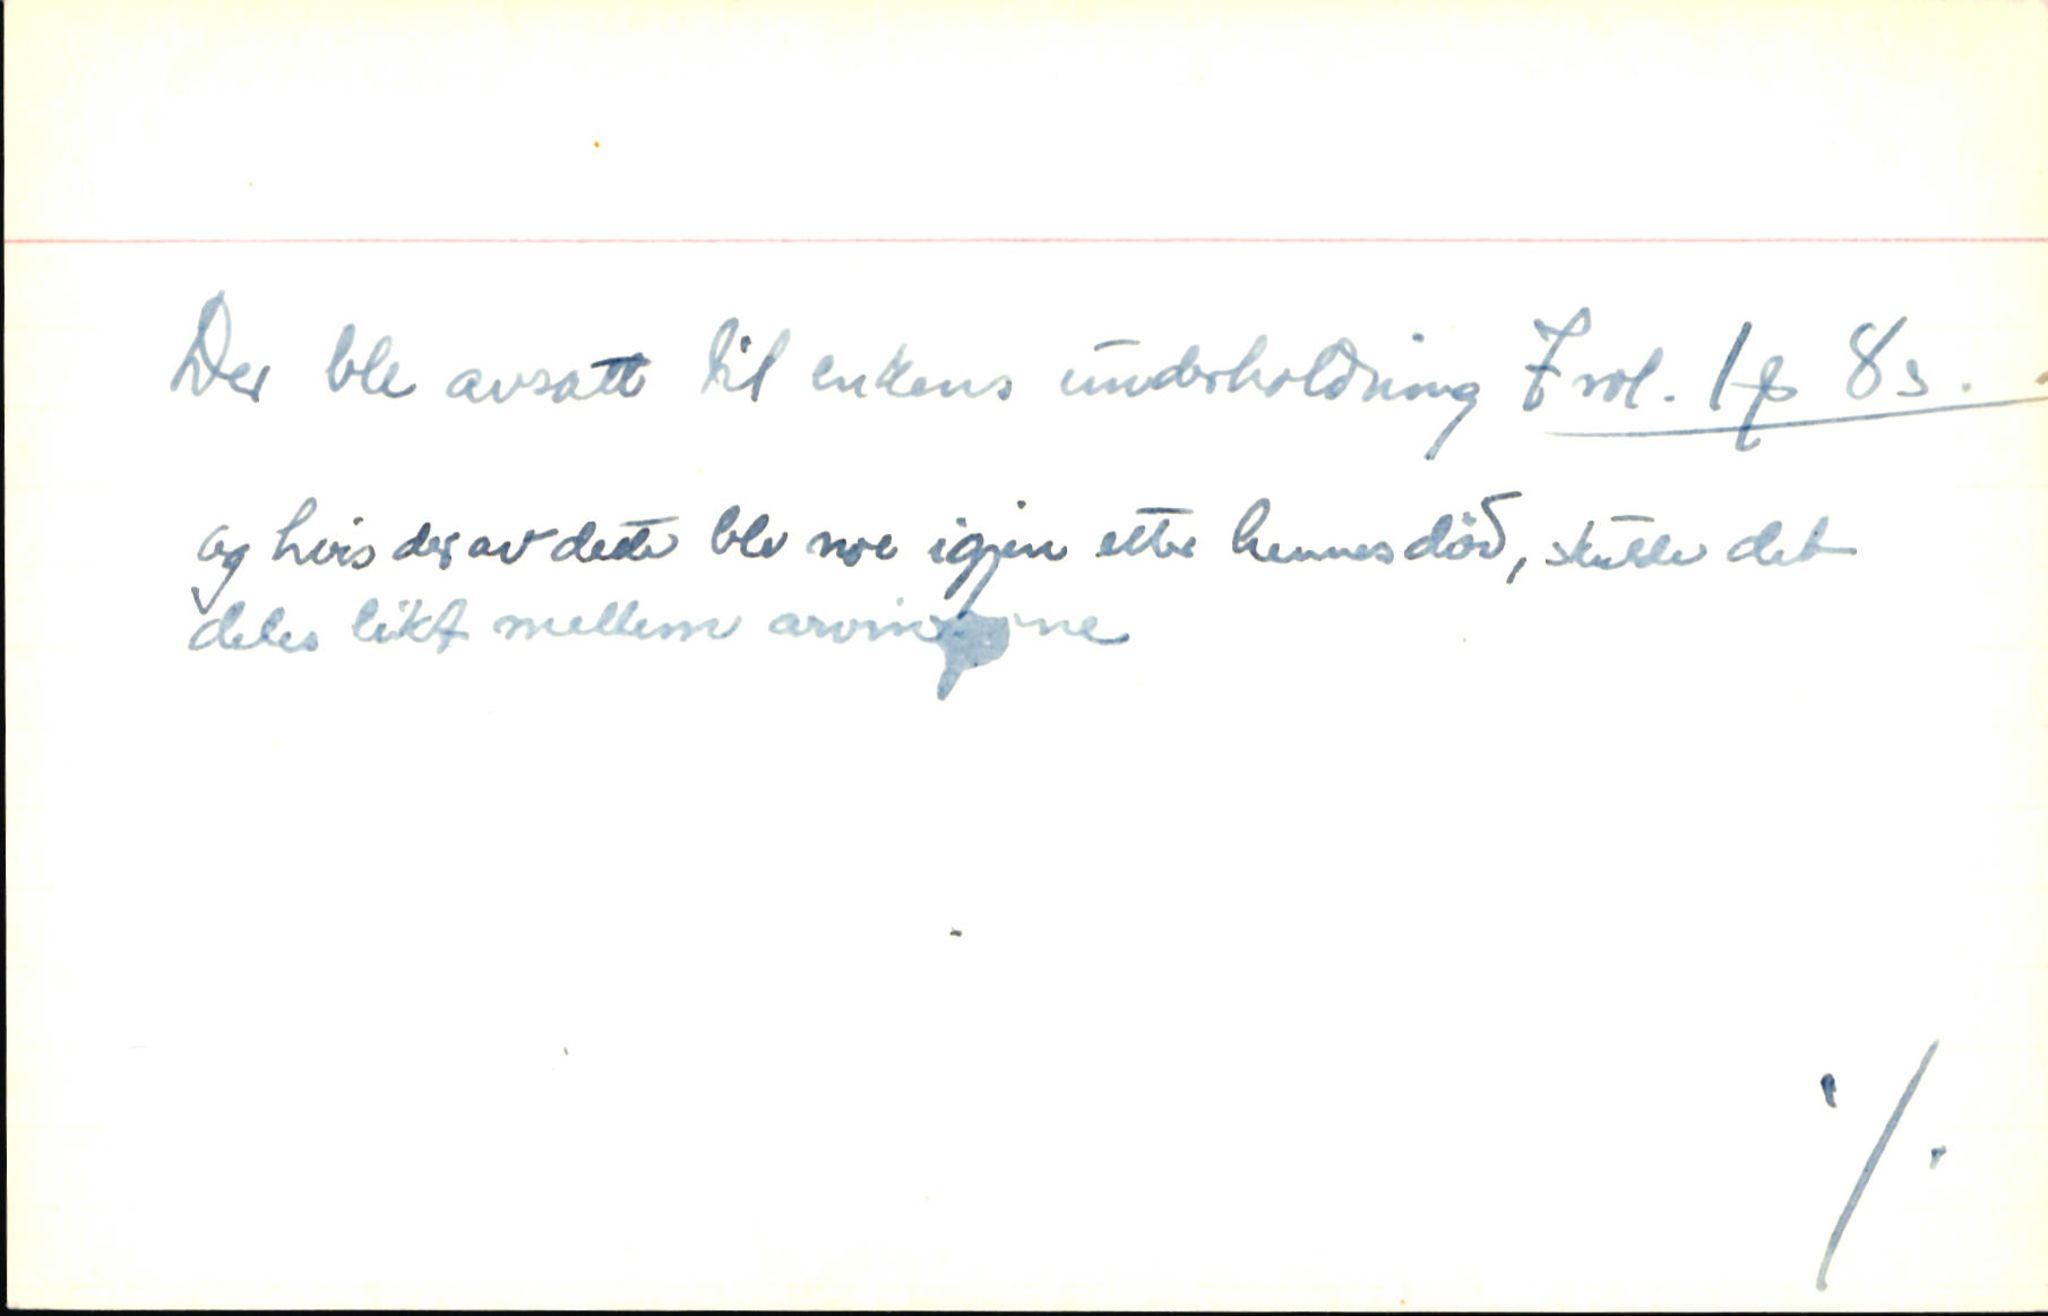 Der ble avsatt til enkens underholdning 7 rdl. 1 8 s.
og hvis der av dette ble noe igjen etter hennes död, skulde det
deles likt mellem arvingene
./.